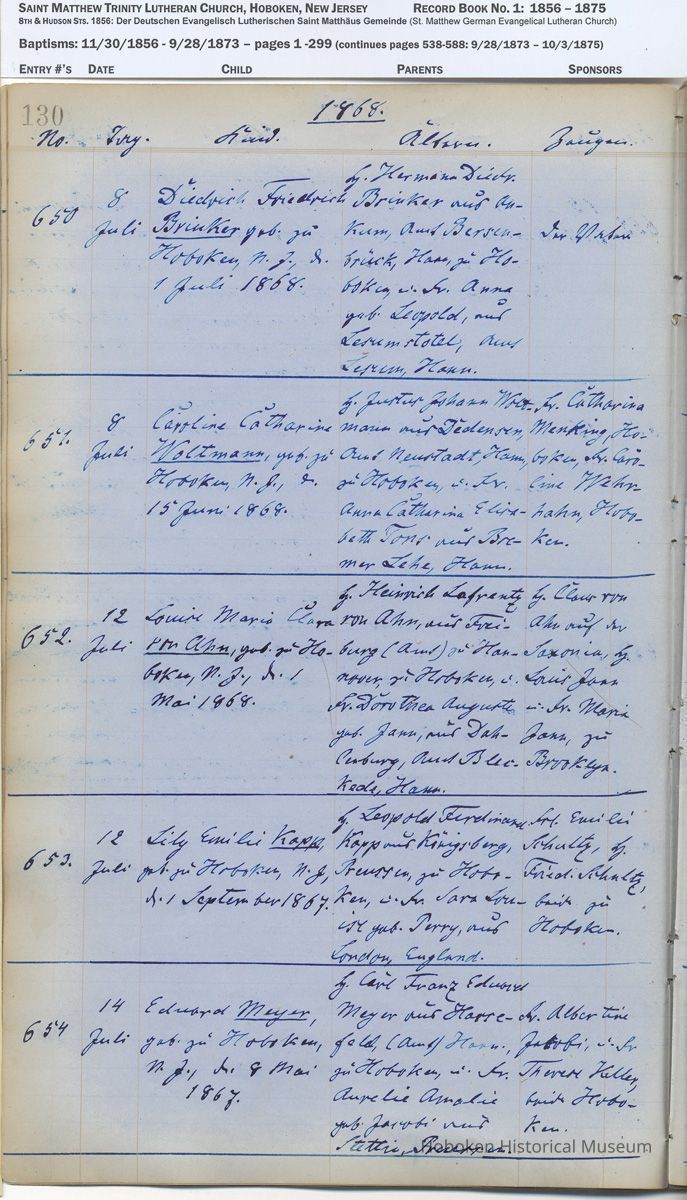 SAINT MATTHEW TRINITY LUTHERAN CHURCH, HOBOKEN, NEW JERSEY RECORD BOOK NO. 1: 1856 – 1875
8TH & HUDSON STS. 1856: Der Deutschen Evangelisch Lutherischen Saint Matthäus Gemeinde (St. Matthew German Evangelical Lutheran Church)
Baptisms: 11/30/1856 - 9/28/1873 – pages 1 -299 (continues pages 538-588: 9/28/1873 – 10/3/1875)
ENTRY #'S DATE CHILD PARENTS SPONSORS
130
1868.
No. Tag. Kind. Ältern. Zeugen.
650
8
Juli
Diedrich Friedrich
Brinker geb. zu
Hoboken, N. J., d.
1 Juli 1868.
H. Hermann Diedr.
Brinker aus An-
kum, Amt Bersen-
brück, Hann, zu Ho-
boken, u. Fr. Anna
geb. Leopold, aus
Lesumstotel, Amt
Lesum, Hann.
Der Vater
651.
8
Juli
Caroline Catharine
Woltmann, geb. zu
Hoboken, N. J., d.
15 Juni 1868.
H. Justus Johann Wolt-
mann aus Dedensen,
Amt Neustadt, Hann,
zu Hoboken, u. Fr.
Anna Catharina Elisa-
beth Tons aus Bre-
mer Lehe, Hann.
Fr. Catharina
Menking, Ho-
boken, Fr. Caro-
line Wehr-
hahn, Hobo-
ken.
652.
12
Juli
Louise Maria Clara
von Ahn, geb. zu Ho-
boken, N. J., d. 1
Mai 1868.
H. Heinrich Lafrentz
von Ahn, aus Frei-
burg (Amt) zu Han-
nover, zu Hoboken, u.
Fr. Dorothea Auguste
geb. Jann, aus Dah-
lenburg, Amt Blec-
kede, Hann.
H. Claus von
Ahn auf der
Saxonia, H.
Louis Jann
u. Fr. Maria
Jann, zu
Brooklyn.
653.
12
Juli
Lily Emilie Kapp,
geb. zu Hoboken, N. J.,
d. 1 September 1867.
H. Leopold Ferdinand
Kapp aus Königsberg,
Preussen, zu Hobo-
ken, u. Fr. Sara Lou-
ise geb. Perry, aus
London, England.
Frl. Emilie
Schultz, H.
Fried. Schultz,
beide zu
Hoboken.
654
14
Juli
Eduard Meyer,
geb. zu Hoboken,
N. J., d. 8 Mai
1867.
H. Carl Franz Eduard
Meyer aus Harse-
feld (Amt) Hann.,
zu Hoboken, u. Fr.
Aurelie Amalie
geb. Jacobi aus
Stettin, Preussen.
Fr. Albertine
Jacobi, u. Fr
Therese Heller,
beide Hobo-
ken.
Hoboken Historical Museum